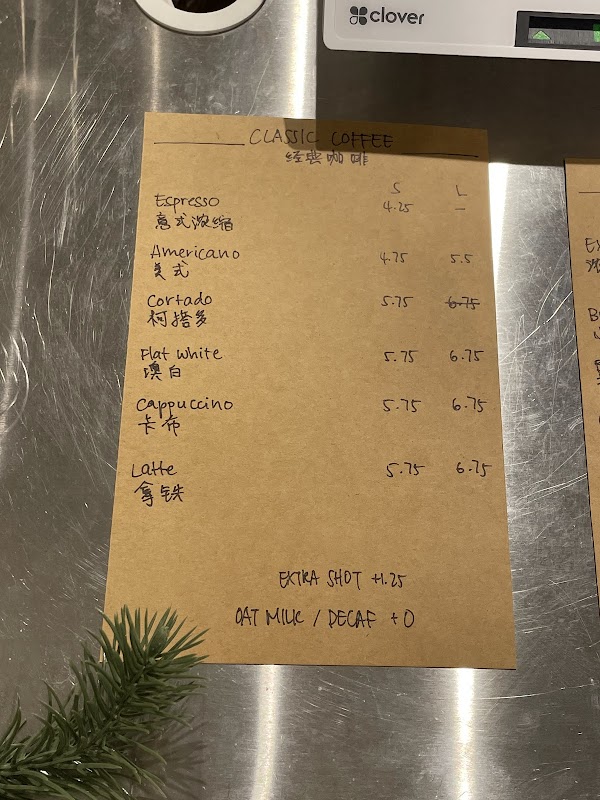 clover
CLASSIC COFFEE
经典咖啡
S L
Espresso 4.25 —
意式浓缩
Americano 4.75 5.5
美式
Cortado 5.75 6.75
柯搭多
Flat White 5.75 6.75
澳白
Cappuccino 5.75 6.75
卡布
Latte 5.75 6.75
拿铁
EXTRA SHOT +1.25
OAT MILK / DECAF +0